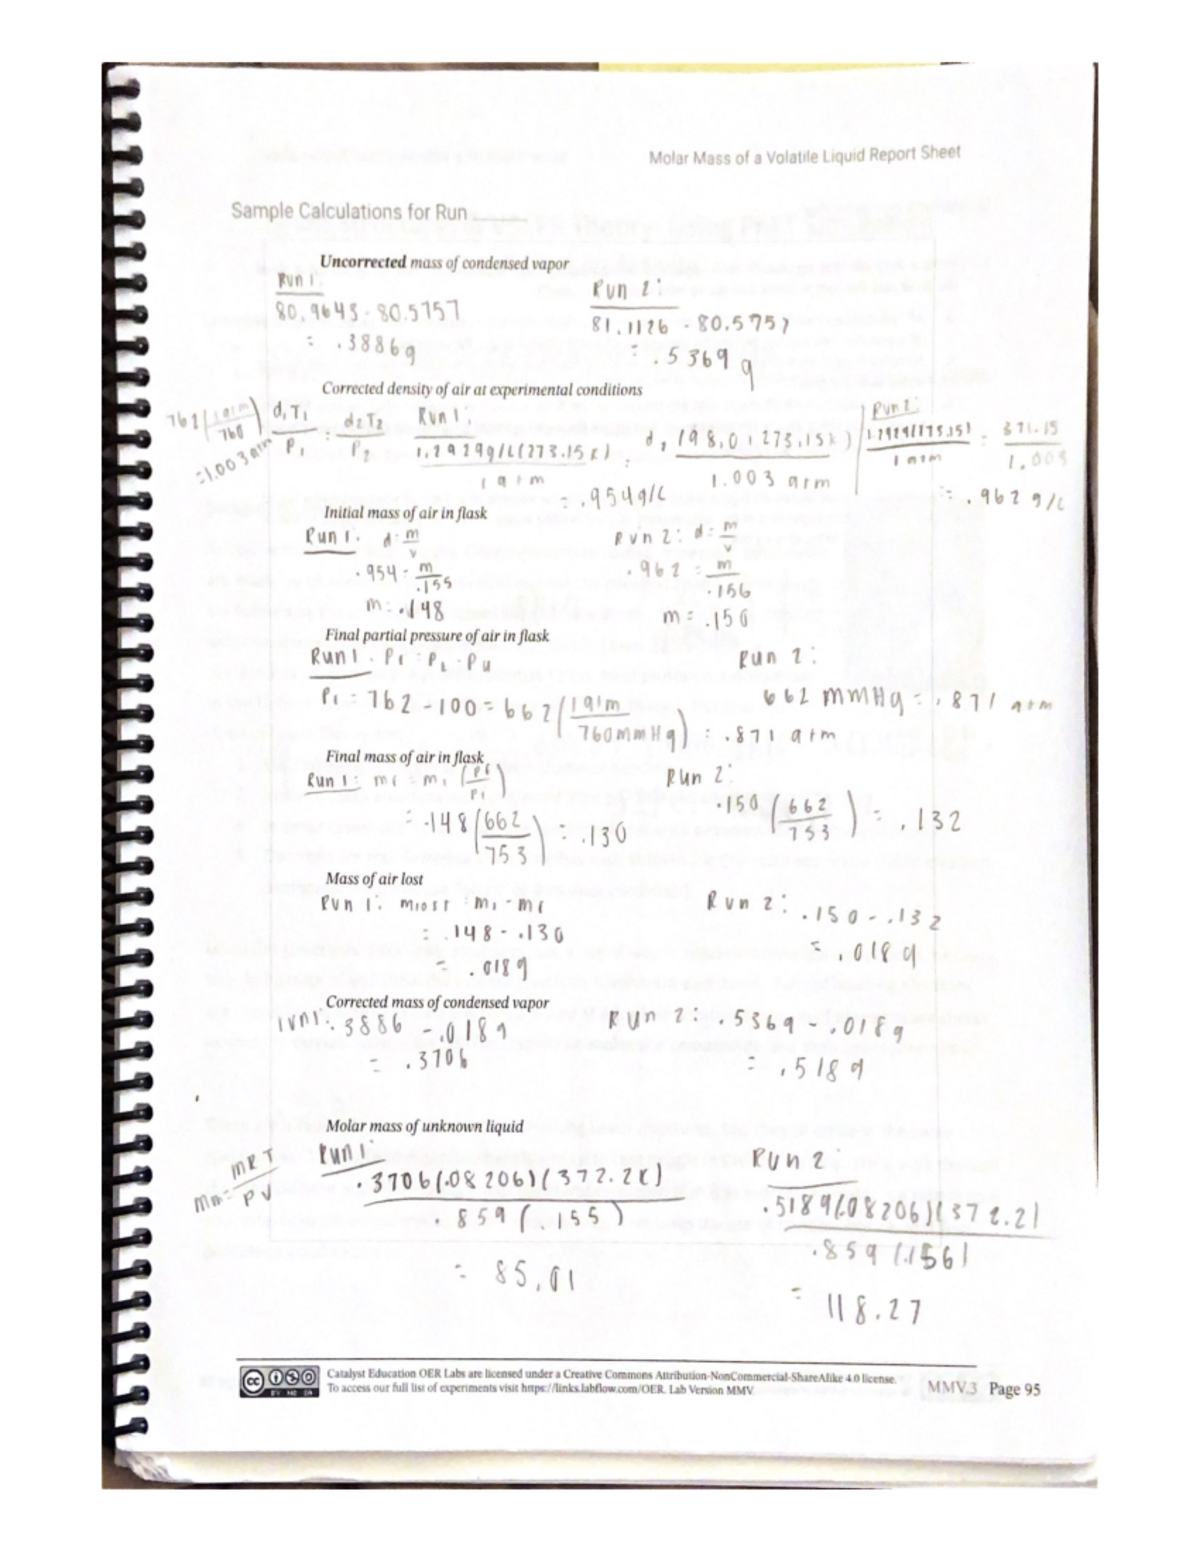 Molar Mass of a Volatile Liquid Report Sheet
Sample Calculations for Run
Uncorrected mass of condensed vapor
Run 1:
80.9643 - 80.5757
= .3886g
Run 2:
81.1126 - 80.5757
= .5369 g
Corrected density of air at experimental conditions
762 (1atm/760)
=1.003atm
d1T1/P1 = d2T2/P2
Run 1:
1.2929g/L(273.15K) / 1atm = d2(98.0+273.15K) / 1.003 atm
= .954g/L
Run 2:
1 atm
= 371.15 / 1.003
= .962 g/L
Initial mass of air in flask
Run 1: d = m/v
.954 = m/.155
m = .148
Run 2: d = m/v
.962 = m/.156
m = .150
Final partial pressure of air in flask
Run 1:
Pf = 762 - 100 = 662 (1atm/760mmHg) = .871 atm
Run 2:
662 mmHg = .871 atm
Final mass of air in flask
Run 1: mf = mi (Pf/Pi)
= .148 (662/753) = .130
Run 2:
.150 (662/753) = .132
Mass of air lost
Run 1: mlost = mi - mf
= .148 - .130
= .018g
Run 2: .150 - .132
= .018g
Corrected mass of condensed vapor
.3886 - .018g
= .3706
Run 2: .5369 - .018g
= .5189
Molar mass of unknown liquid
mm = mRT/PV
Run 1:
.3706(.08206)(372.2K)
.859 (.155)
= 85.01
Run 2:
.5189(.08206)(372.2)
.859 (.156)
= 118.27
cc
BY NC SA
Catalyst Education OER Labs are licensed under a Creative Commons Attribution-NonCommercial-ShareAlike 4.0 license.
To access our full list of experiments visit https://links.labflow.com/OER. Lab Version MMV
MMV.3 Page 95